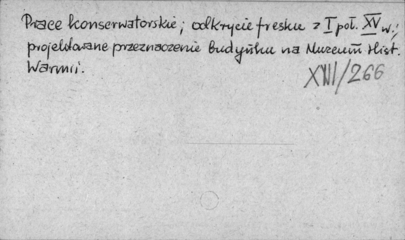 Prace konserwatorskie; odkrycie fresku z I poł. XV w.;
projektowane przeznaczenie budynku na Muzeum Hist.
Warmii.
XVII/266